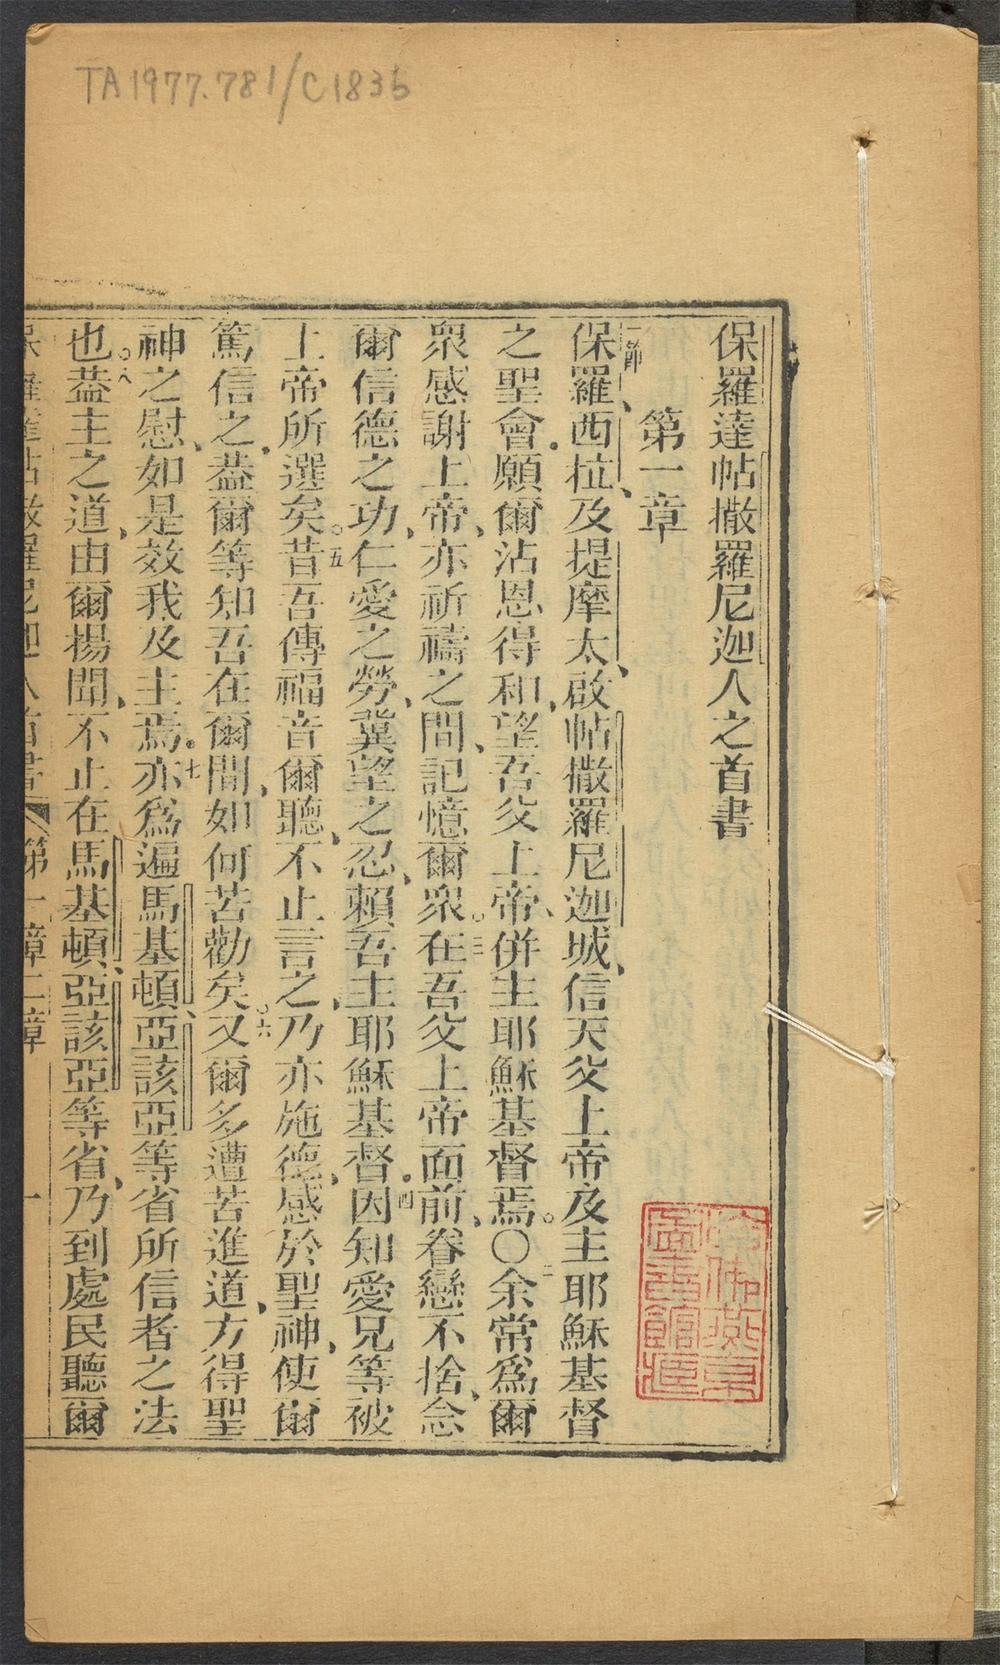 TA 1977.781/C1835
保羅達帖撒羅尼迦人之首書
第一章
一節
保羅、西拉、及提摩太、啟帖撒羅尼迦城、信天父上帝及主耶穌基督
之聖會。願爾沾恩得和、望吾父上帝、併主耶穌基督焉。〇二余常爲爾
衆感謝上帝、亦祈禱之間、記憶爾衆。三在吾父上帝面前、眷戀不捨、念
爾信德之功、仁愛之勞、冀望之忍、賴吾主耶穌基督。四因知愛兄等被
上帝所選矣。五昔吾傳福音爾聽、不止言之、乃亦施德、感於聖神、使爾
篤信之、葢爾等知吾在爾間、如何苦勸矣。六又爾多遭苦進道、方得聖
神之慰、如是效我及主焉。七亦爲遍馬基頓、亞該亞等省所信者之法
也。八葢主之道、由爾揚聞、不止在馬基頓、亞該亞等省、乃到處民聽爾
保羅達帖撒羅尼迦人首書 第一章二章 一
哈佛燕京
圖書館藏